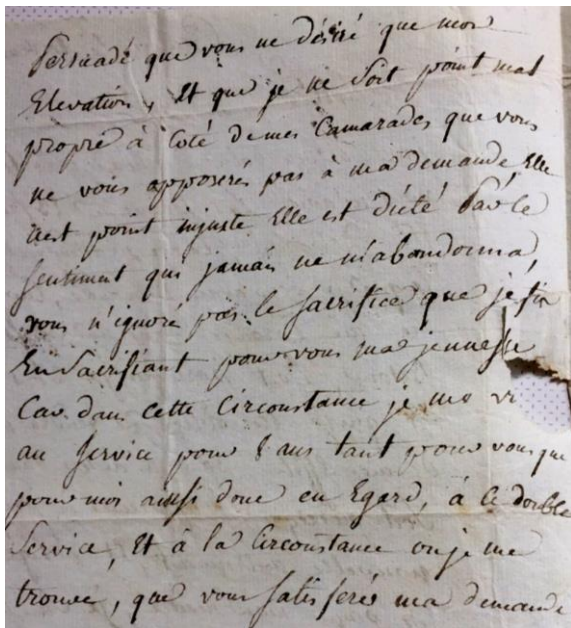 Persuadé que vous ne désiré que mon
Elevation, Et que je ne Soit point mal
propre à Coté de mes Camarades que vous
ne vous opposerés pas à ma demande, Elle
nest point injuste Elle est dicté Par le
sentiment qui jamais ne m'abandonna,
vous n'ignoré pas le sacrifice que je fis
En Sacrifiant pour vous ma jeunesse
Car dans cette Circonstance je me
au Service pour 8 ans tant pour vous que
pour moi ainsi donc en Egard, à ce double
Service, Et à la Circonstance ou je me
trouve, que vous satisferés ma demande